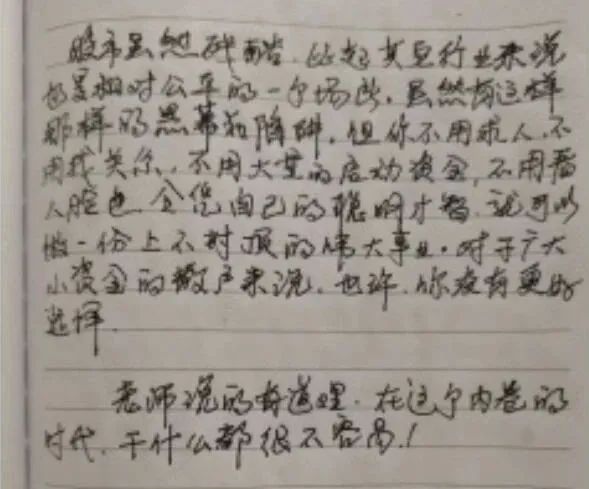 股市虽然残酷,比起其它行业来说
也是相对公平的一个场所,虽然有这样
那样的黑幕和陷阱,但你不用求人,不
用找关系,不用大量的启动资金,不用看
人脸色,全凭自己的聪明才智,就可以
做一份上不封顶的伟大事业.对于广大
小资金的散户来说,也许,你没有更好
选择.
老师说的有道理.在这个内卷的
时代,干什么都很不容易!